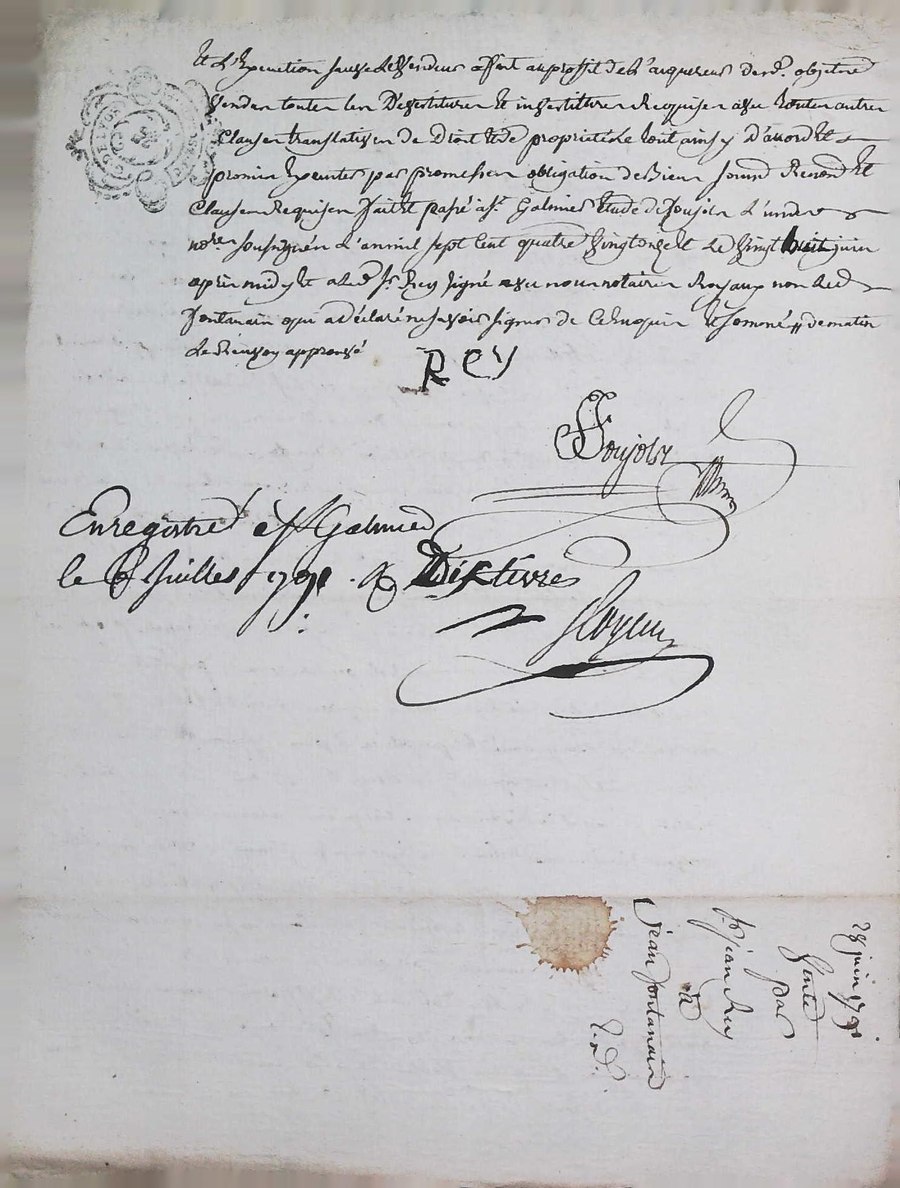 Et d'Execution sauve Le Vendeur offert au proffit de L'acquereur desd. objets
Vendu toutes les Devestitures Et investitures Requises avec toutes autres
Clauses translatives de Droit Et de proprieté Le tout ainsy D'accord Et
promis Executer par promesses obligation de Biens soumd. Renond. Et
Clauses Requises fait Et passé a St. Galmier Etude de Soujols L'un des
nores. soussignés L'an mil sept Cent quatre Vingt onze Et Le Vingt huit juin
après midy Et a Led. Sr. Rey signé avec nous notaires Royaux non Led.
fontanain qui a déclaré ne savoir signer de Ce Enquis Et sommé // de matin
approuvé
REY
Soujols
Enregistré à St Galmier
le 6 Juillet 1791 Dix Livres
28 juin 1791
Vente
par
Sr jean Rey
à
jean fontanain